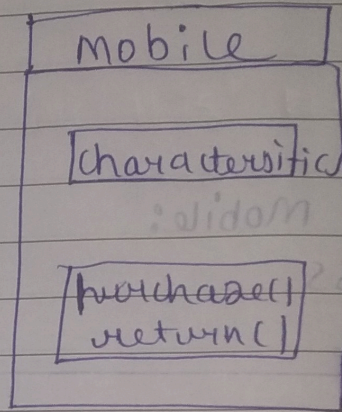 mobile
charactersitic
purchase()
return()